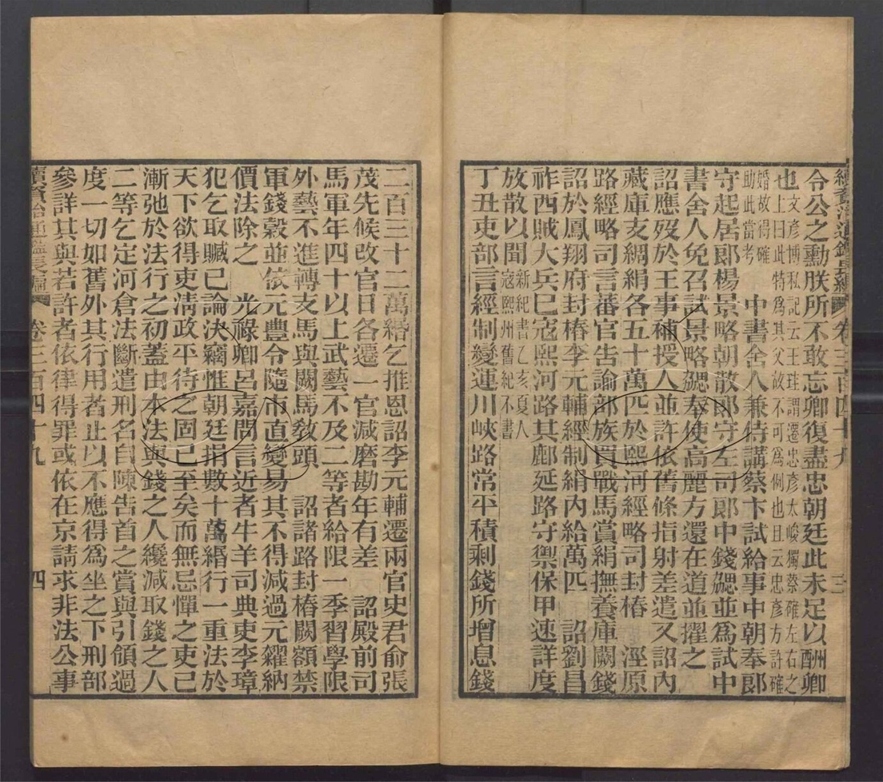 續資治通鑑長編 卷三百四十九 三
令公之勳朕所不敢忘卿復盡忠朝廷此未足以酬卿
也文彥博私記云王珪謂遷忠彥太峻獨蔡確左右之
上曰此特爲其父故不可爲例也且云忠彥方許確
婚故得確
助此當考 中書舍人兼侍講蔡卞試給事中朝奉郎
守起居郎楊景略朝散郎守左司郎中錢勰並爲試中
書舍人免召試景略勰奉使高麗方還在道並擢之
詔應歿於王事補授人並許依舊條指射差遣又詔內
藏庫支綢絹各五十萬匹於熙河經略司封樁 涇原
路經略司言蕃官告諭部族買戰馬賞絹撫養庫闕錢
詔於鳳翔府封樁李元輔經制絹內給萬匹 詔劉昌
祚西賊大兵已寇熙河路其鄜延路守禦保甲速詳度
放散以聞新紀書乙亥夏人
寇熙州舊紀不書
丁丑吏部言經制變運川峽路常平積剩錢所增息錢
二百三十二萬緡乞推恩詔李元輔遷兩官史君俞張
茂先候改官日各遷一官減磨勘年有差 詔殿前司
馬軍年四十以上武藝不及二等者給限一季習學限
外藝不進轉支馬與闕馬敎頭 詔諸路封樁闕額禁
軍錢穀並依元豐令隨市直變易其不得減過元糴納
價法除之 光祿卿呂嘉問言近者牛羊司典吏李璋
犯乞取贓已論決竊惟朝廷捐數十萬緡行一重法於
天下欲得吏淸政平待之固已至矣而無忌憚之吏已
漸弛於法行之初蓋由本法與錢之人纔減取錢之人
二等乞定河倉法斷遣刑名自陳告首之賞與引領過
度一切如舊外其行用者止以不應得爲坐之下刑部
參詳其與若許者依律得罪或依在京請求非法公事
續資治通鑑長編 卷三百四十九 四